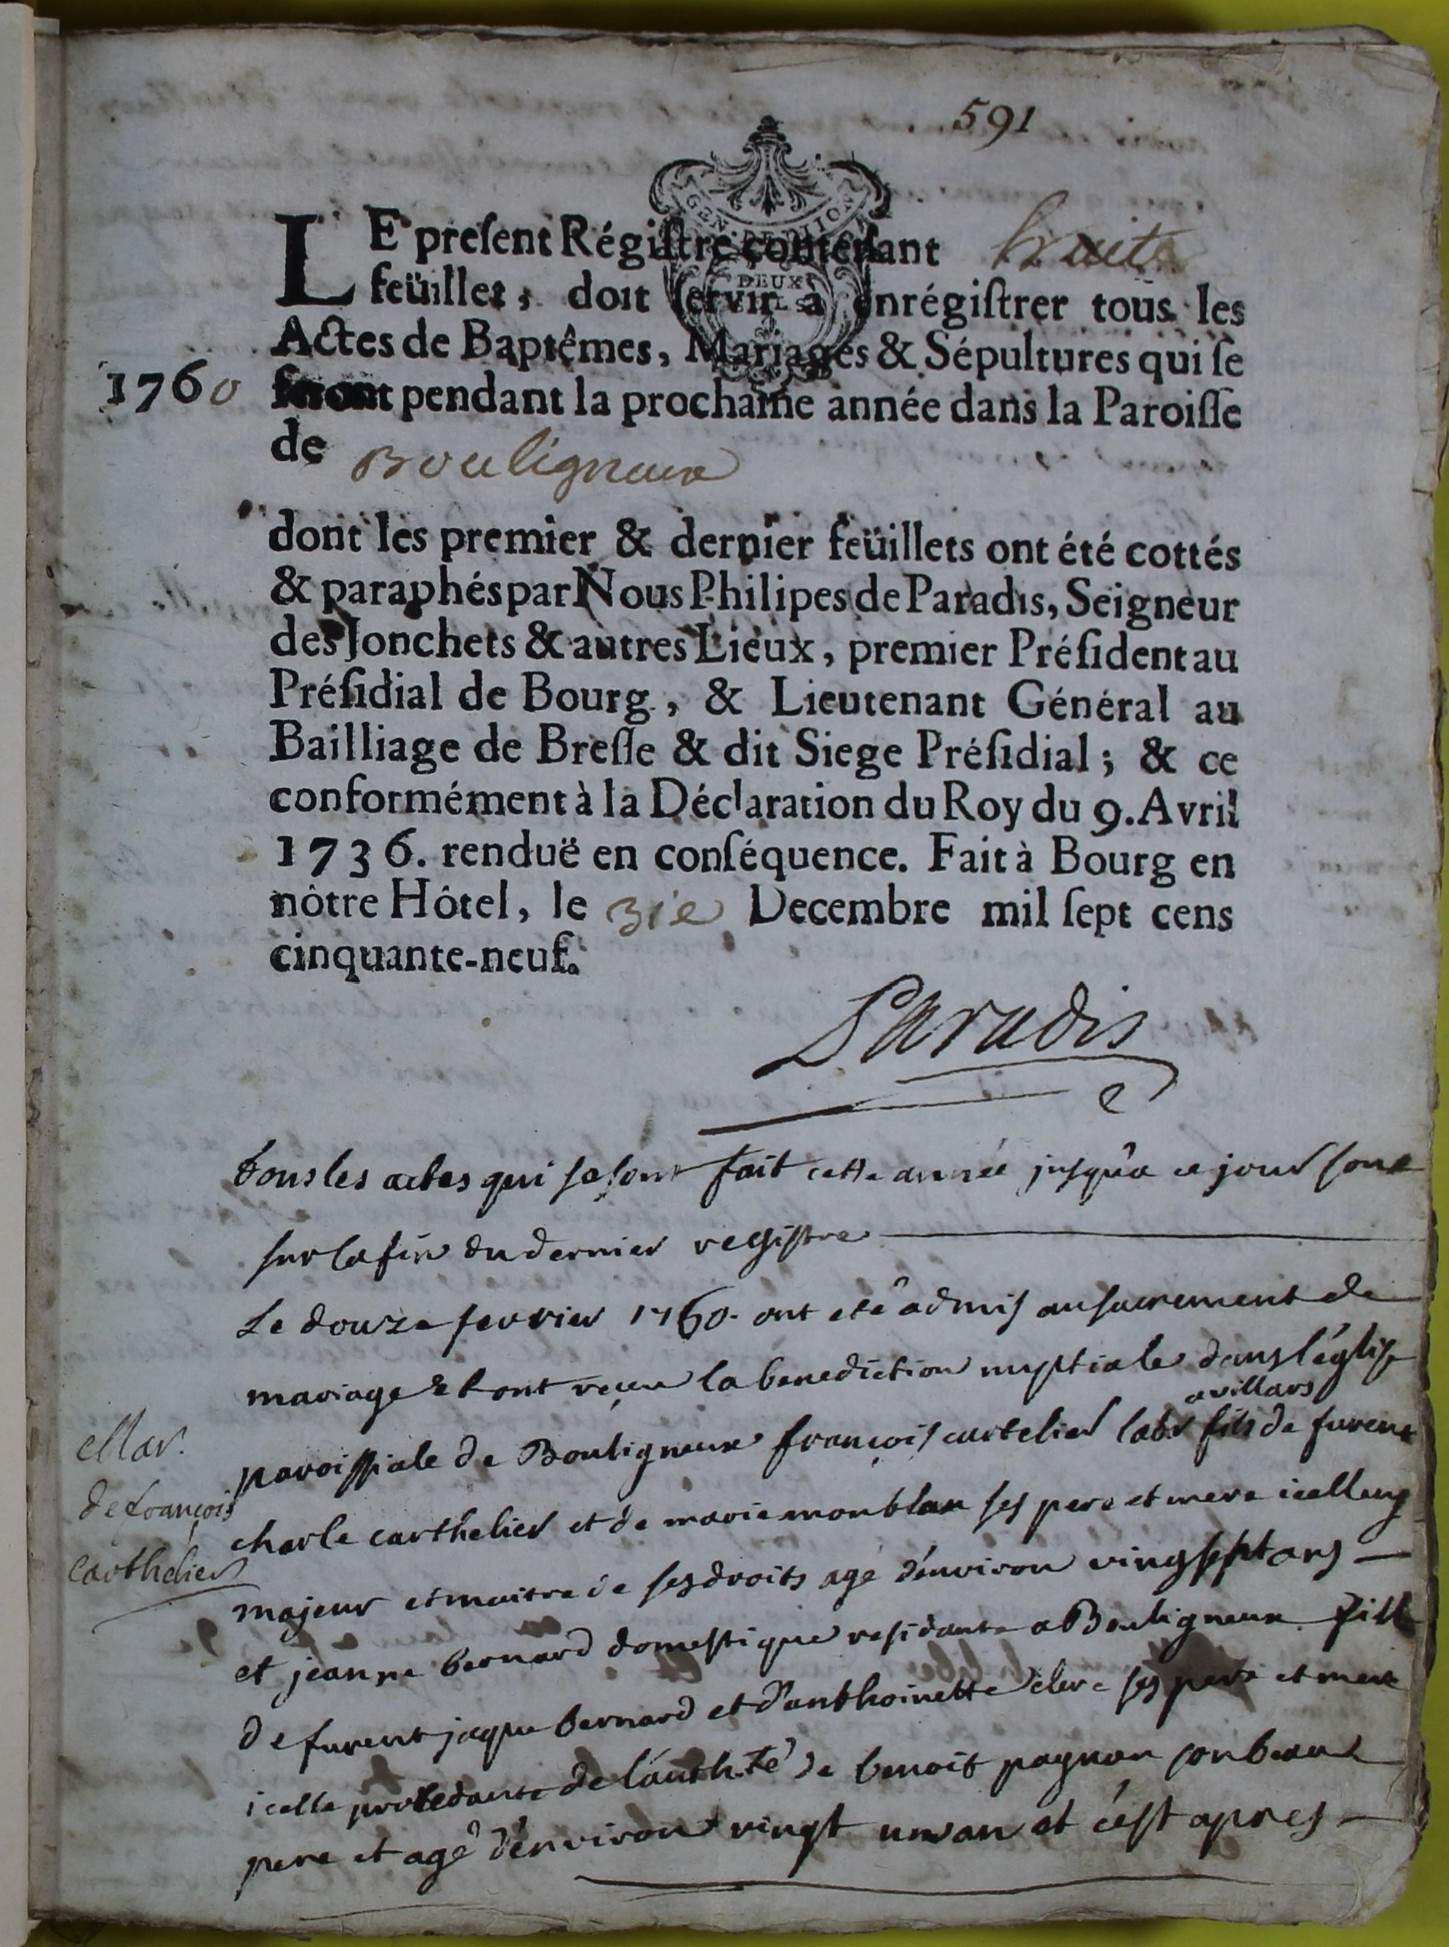 591
GEN. DE DIION
DEUX
LE preſent Régiſtre contenant huite
feüillet, doit ſervir à enrégiſtrer tous les
Actes de Baptêmes, Mariages & Sépultures qui ſe
1760
feront pendant la prochaine année dans la Paroiſſe
de Bouligneux
dont les premier & dernier feüillets ont été cottés
& paraphés par Nous Philipes de Paradis, Seigneur
des Jonchets & autres Lieux, premier Préſident au
Préſidial de Bourg, & Lieutenant Général au
Bailliage de Breſſe & dit Siege Préſidial; & ce
conformément à la Déclaration du Roy du 9. Avril
1736. renduë en conſéquence. Fait à Bourg en
nôtre Hôtel, le 31e Decembre mil ſept cens
cinquante-neuf.
Paradis
tous les actes qui se sont fait cette année jusqu'a ce jour sont
sur la fin du dernier registre
Le douze fevrier 1760. ont eté admis au sacrement de
mariage et ont reçeu la benediction nuptiale dans l'église
avillars
paroissiale de Bouligneux françois cartelier labr fils de furent
charle carthelier et de marie monblan ses pere et mere icelluy
Mar.
de françois
carthelier
majeur et maitre de ses droits agé d'environ vingsept ans
et jeanne bernard domestique residante a Bouligneux fille
de furent jaque bernard et d'anthoinette clerc ses pere et mere
icelle procedante de l'auth.té de benoit pagnon son beau
pere et agé d'environ vingt un an et c'est apres